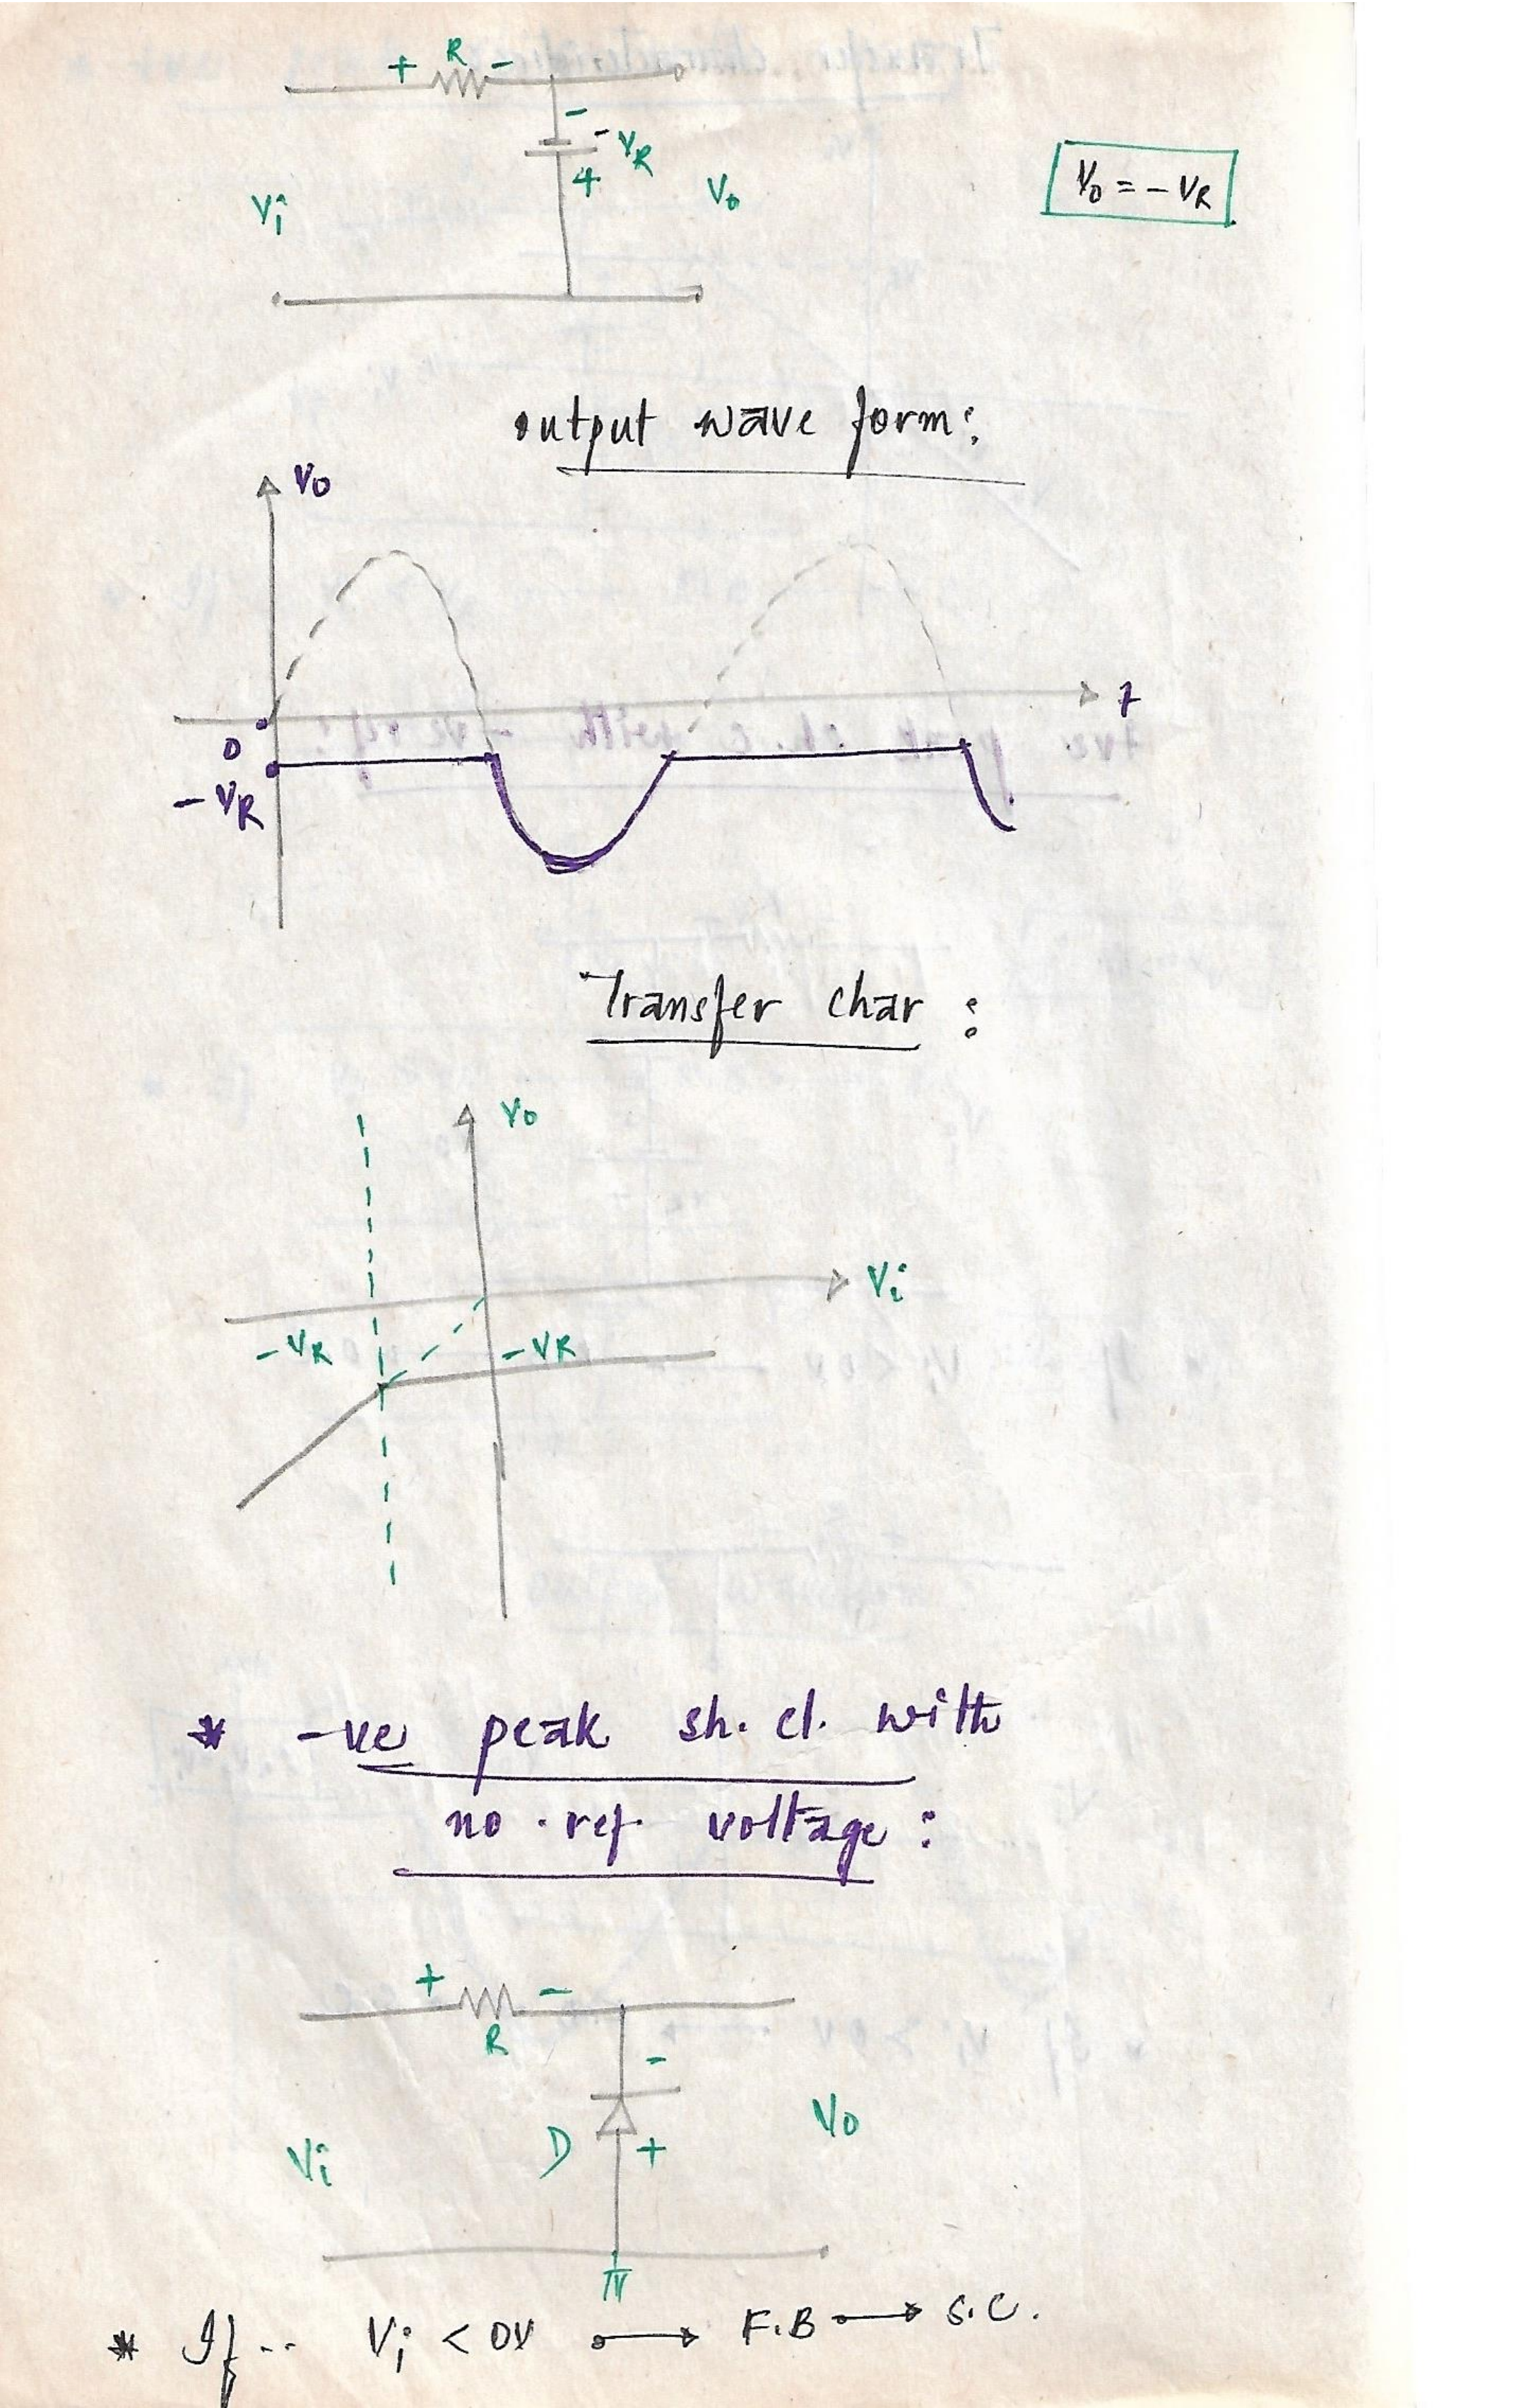 + R -
-
- VR
+
Vi
Vo
Vo = - VR
output wave form:
Vo
t
0
- VR
Transfer char :
Vo
Vi
- VR
- VR
* -ve peak sh. cl. with
no. ref. voltage :
+ -
R
-
D +
Vi
Vo
* If -- Vi < 0V → F.B → S.C.